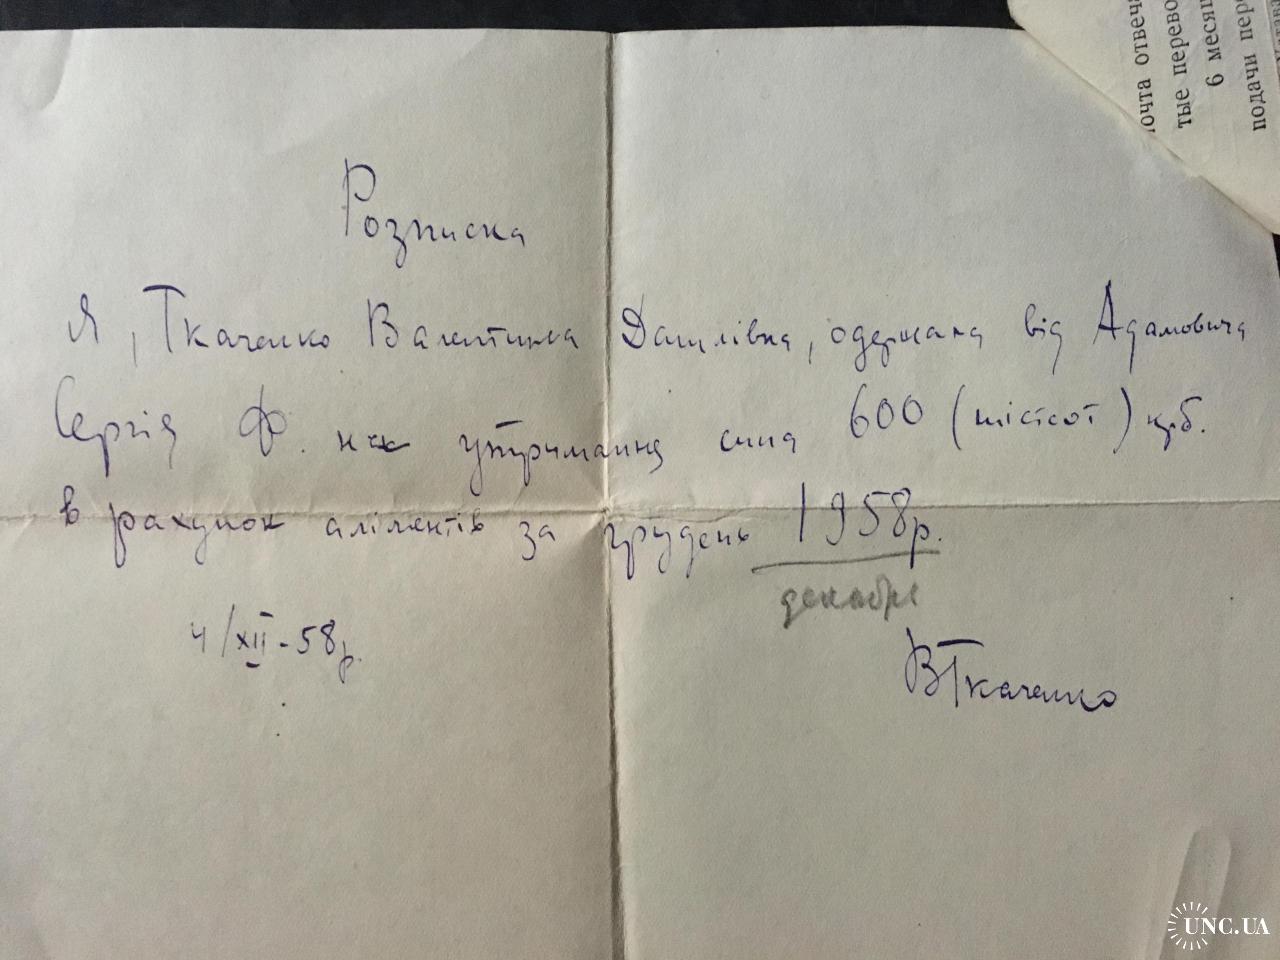 Розписка
Я, Ткаченко Валентина Данилівна, одержала від Адамовича
Сергія Ф. на утримання сина 600 (шістсот) крб.
в рахунок аліментів за грудень 1958р.
декабрь
4/XII-58р.
ВТкаченко
очта отвеча
тые перево
6 месяц
подачи пер
UNC.UA